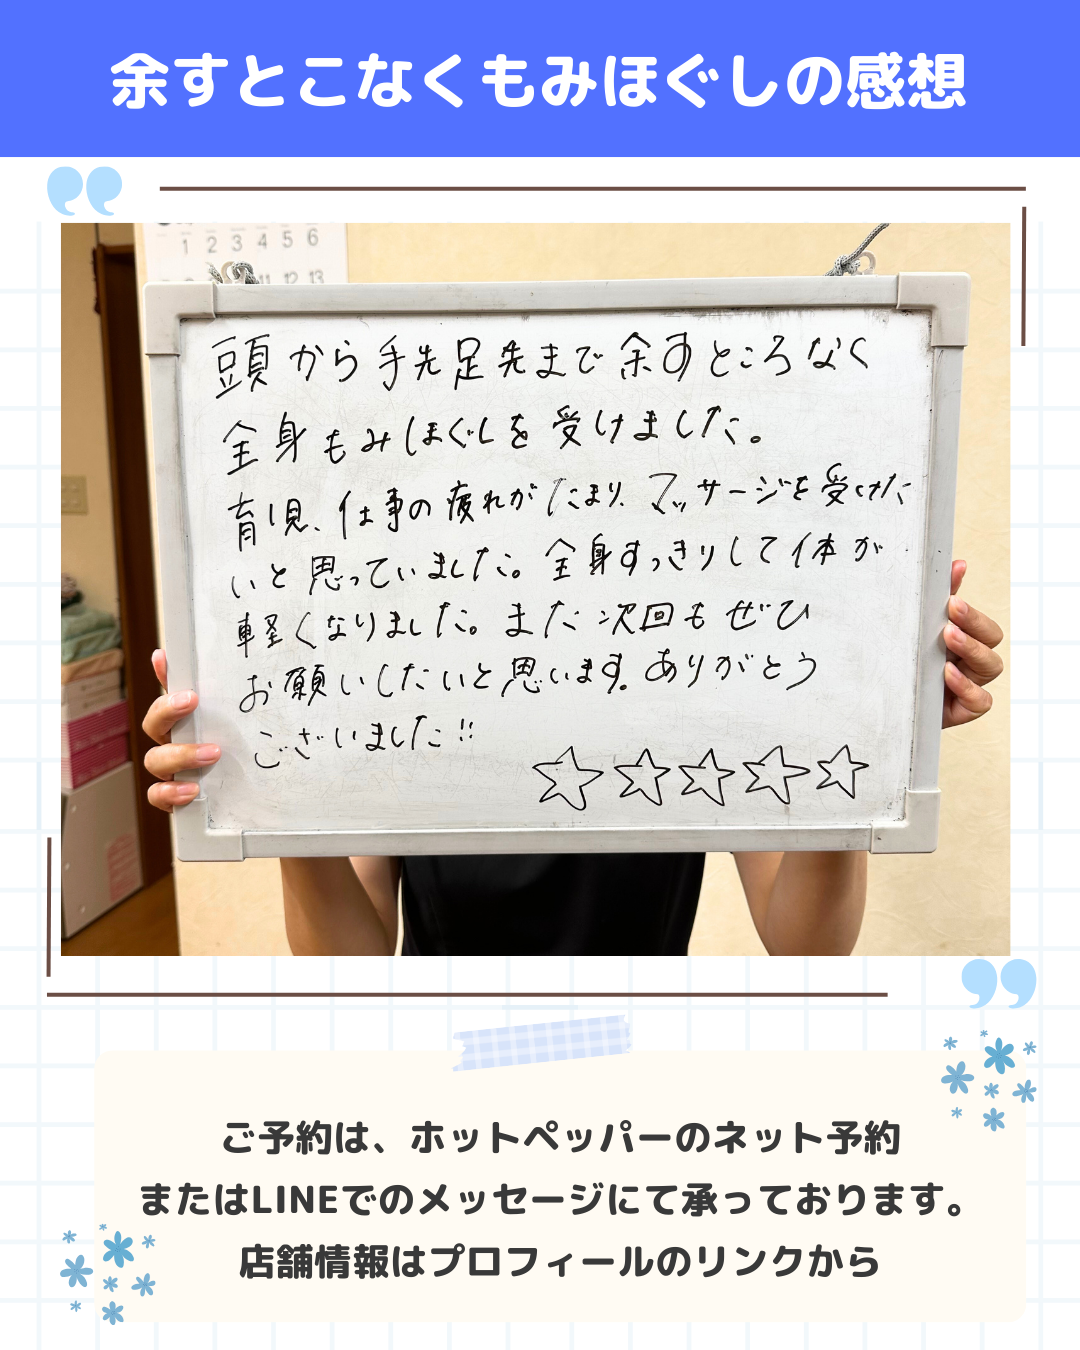 余すとこなくもみほぐしの感想
1 2 3 4 5 6
11 12 13
頭から手先足先まで余すところなく
全身もみほぐしを受けました。
育児、仕事の疲れがたまり、マッサージを受けた
いと思っていました。全身すっきりして体が
軽くなりました。また次回もぜひ
お願いしたいと思います。ありがとう
ございました!!
☆☆☆☆☆
ご予約は、ホットペッパーのネット予約
またはLINEでのメッセージにて承っております。
店舗情報はプロフィールのリンクから